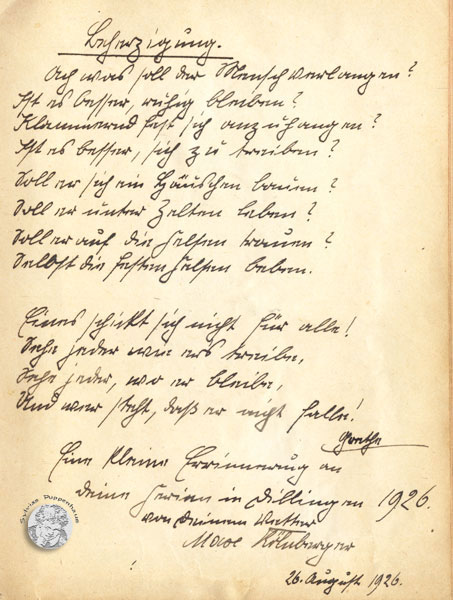 Beherzigung.
Ach was soll der Mensch verlangen?
Ist es besser, ruhig bleiben?
Klammernd fest sich anzuhangen?
Ist es besser, sich zu treiben?
Soll er sich ein Häuschen bauen?
Soll er unter Zelten leben?
Soll er auf die Felsen trauen?
Selbst die festen Felsen beben.
Eines schickt sich nicht für alle!
Sehe jeder wie ers treibe,
Sehe jeder, wo er bleibe,
Und wer steht, daß er nicht falle!
Goethe
Eine kleine Errinnerug an
deine Ferien in Dillingen 1926.
von Deinem Vetter
Max
26. August 1926.
Sylvias Puppenheime